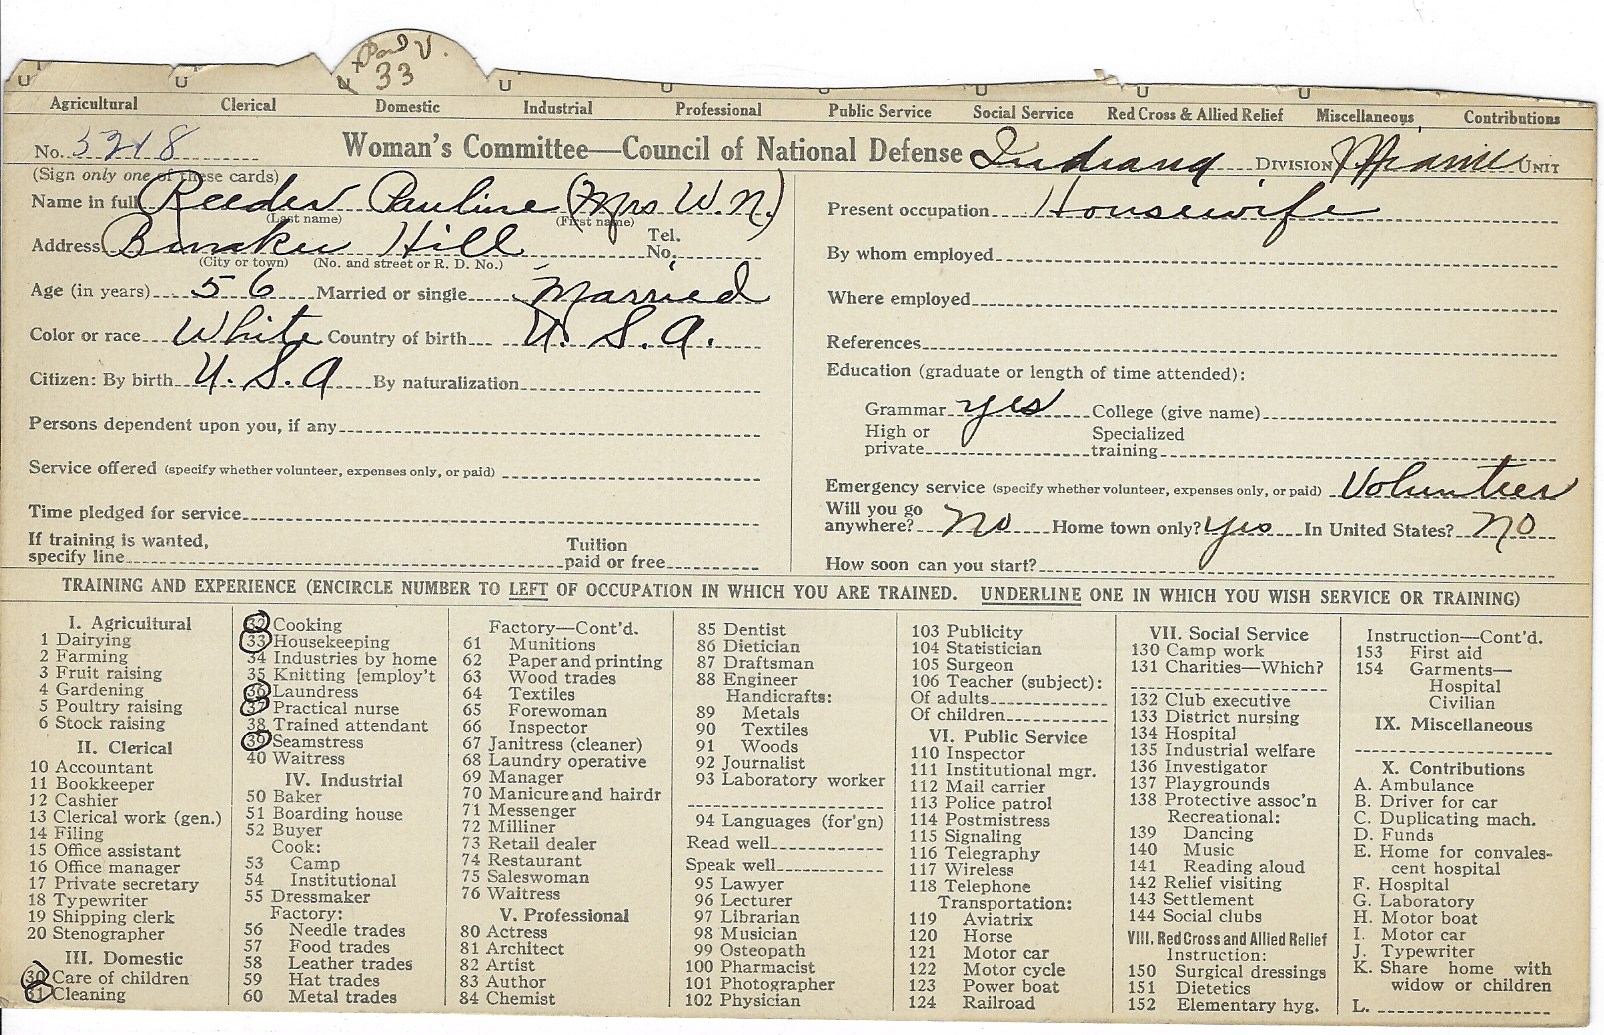 Pard V.
33
U U U U U U U U U
Agricultural Clerical Domestic Industrial Professional Public Service Social Service Red Cross & Allied Relief Miscellaneous Contributions
No. 5218 Woman's Committee—Council of National Defense Indiana DIVISION Miami UNIT
(Sign only one of these cards)
Name in full Reeder Pauline (Mrs W. N.)
(Last name) (First name)
Address Bunker Hill Tel. No.
(City or town) (No. and street or R. D. No.)
Age (in years) 56 Married or single Married
Color or race White Country of birth U. S. A.
Citizen: By birth U. S. A By naturalization
Persons dependent upon you, if any
Service offered (specify whether volunteer, expenses only, or paid)
Time pledged for service
If training is wanted, specify line Tuition paid or free
Present occupation Housewife
By whom employed
Where employed
References
Education (graduate or length of time attended):
Grammar yes College (give name)
High or private Specialized training
Emergency service (specify whether volunteer, expenses only, or paid) Volunteer
Will you go anywhere? No Home town only? yes In United States? No
How soon can you start?
TRAINING AND EXPERIENCE (ENCIRCLE NUMBER TO LEFT OF OCCUPATION IN WHICH YOU ARE TRAINED. UNDERLINE ONE IN WHICH YOU WISH SERVICE OR TRAINING)
I. Agricultural
1 Dairying
2 Farming
3 Fruit raising
4 Gardening
5 Poultry raising
6 Stock raising
II. Clerical
10 Accountant
11 Bookkeeper
12 Cashier
13 Clerical work (gen.)
14 Filing
15 Office assistant
16 Office manager
17 Private secretary
18 Typewriter
19 Shipping clerk
20 Stenographer
III. Domestic
30 Care of children
31 Cleaning
32 Cooking
33 Housekeeping
34 Industries by home
35 Knitting [employ't
36 Laundress
37 Practical nurse
38 Trained attendant
39 Seamstress
40 Waitress
IV. Industrial
50 Baker
51 Boarding house
52 Buyer
Cook:
53 Camp
54 Institutional
55 Dressmaker
Factory:
56 Needle trades
57 Food trades
58 Leather trades
59 Hat trades
60 Metal trades
Factory—Cont'd.
61 Munitions
62 Paper and printing
63 Wood trades
64 Textiles
65 Forewoman
66 Inspector
67 Janitress (cleaner)
68 Laundry operative
69 Manager
70 Manicure and hairdr
71 Messenger
72 Milliner
73 Retail dealer
74 Restaurant
75 Saleswoman
76 Waitress
V. Professional
80 Actress
81 Architect
82 Artist
83 Author
84 Chemist
85 Dentist
86 Dietician
87 Draftsman
88 Engineer
Handicrafts:
89 Metals
90 Textiles
91 Woods
92 Journalist
93 Laboratory worker
94 Languages (for'gn)
Read well
Speak well
95 Lawyer
96 Lecturer
97 Librarian
98 Musician
99 Osteopath
100 Pharmacist
101 Photographer
102 Physician
103 Publicity
104 Statistician
105 Surgeon
106 Teacher (subject):
Of adults
Of children
VI. Public Service
110 Inspector
111 Institutional mgr.
112 Mail carrier
113 Police patrol
114 Postmistress
115 Signaling
116 Telegraphy
117 Wireless
118 Telephone
Transportation:
119 Aviatrix
120 Horse
121 Motor car
122 Motor cycle
123 Power boat
124 Railroad
VII. Social Service
130 Camp work
131 Charities—Which?
132 Club executive
133 District nursing
134 Hospital
135 Industrial welfare
136 Investigator
137 Playgrounds
138 Protective assoc'n
Recreational:
139 Dancing
140 Music
141 Reading aloud
142 Relief visiting
143 Settlement
144 Social clubs
VIII. Red Cross and Allied Relief
Instruction:
150 Surgical dressings
151 Dietetics
152 Elementary hyg.
Instruction—Cont'd.
153 First aid
154 Garments—
Hospital
Civilian
IX. Miscellaneous
X. Contributions
A. Ambulance
B. Driver for car
C. Duplicating mach.
D. Funds
E. Home for convales-
cent hospital
F. Hospital
G. Laboratory
H. Motor boat
I. Motor car
J. Typewriter
K. Share home with
widow or children
L.